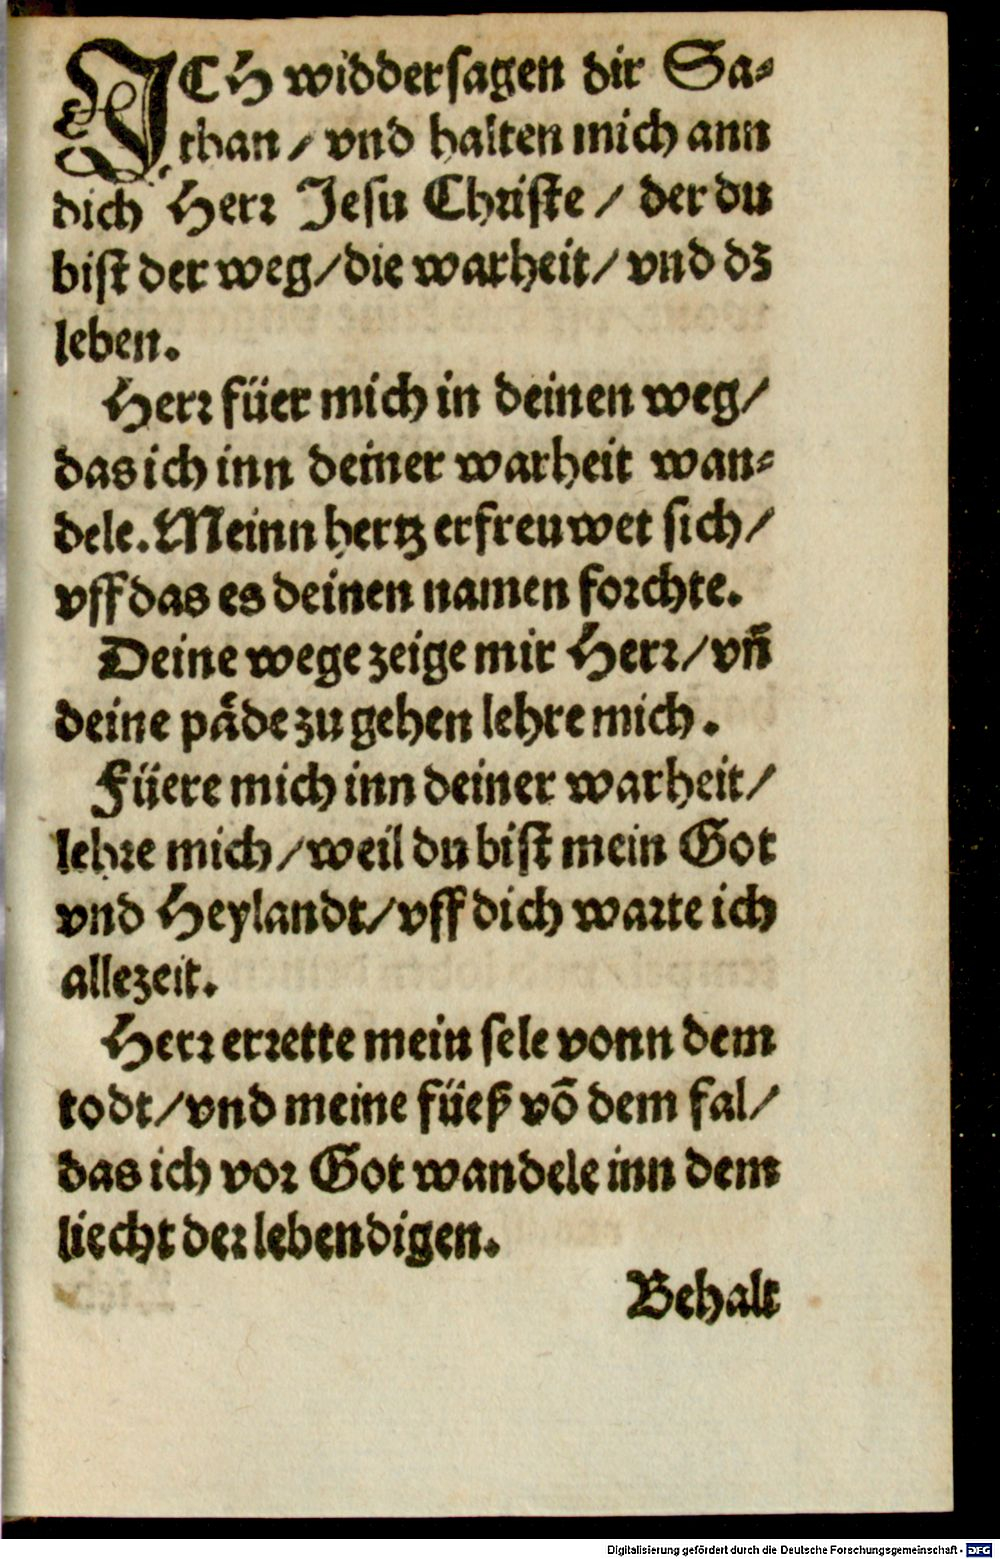 ICH widdersagen dir Sa⸗
than / vnd halten mich ann
dich Herꝛ Jesu Chꝛiste / der du
bist der weg / die warheit / vnd dꝫ
leben.
Herꝛ füer mich in deinen weg /
das ich inn deiner warheit wan⸗
dele. Meinn hertz erfreuwet sich /
vff das es deinen namen foꝛchte.
Deine wege zeige mir Herꝛ / vñ
deine påde zu gehen lehre mich.
Füere mich inn deiner warheit /
lehꝛe mich / weil du bist mein Got
vnd Heylandt / vff dich waꝛte ich
allezeit.
Herꝛ erꝛette mein sele vonn dem
todt / vnd meine füeß võ dem fal /
das ich voꝛ Got wandele inn dem
liecht deꝛ lebendigen.
Behalt
Digitalisierung gefördert durch die Deutsche Forschungsgemeinschaft - DFG